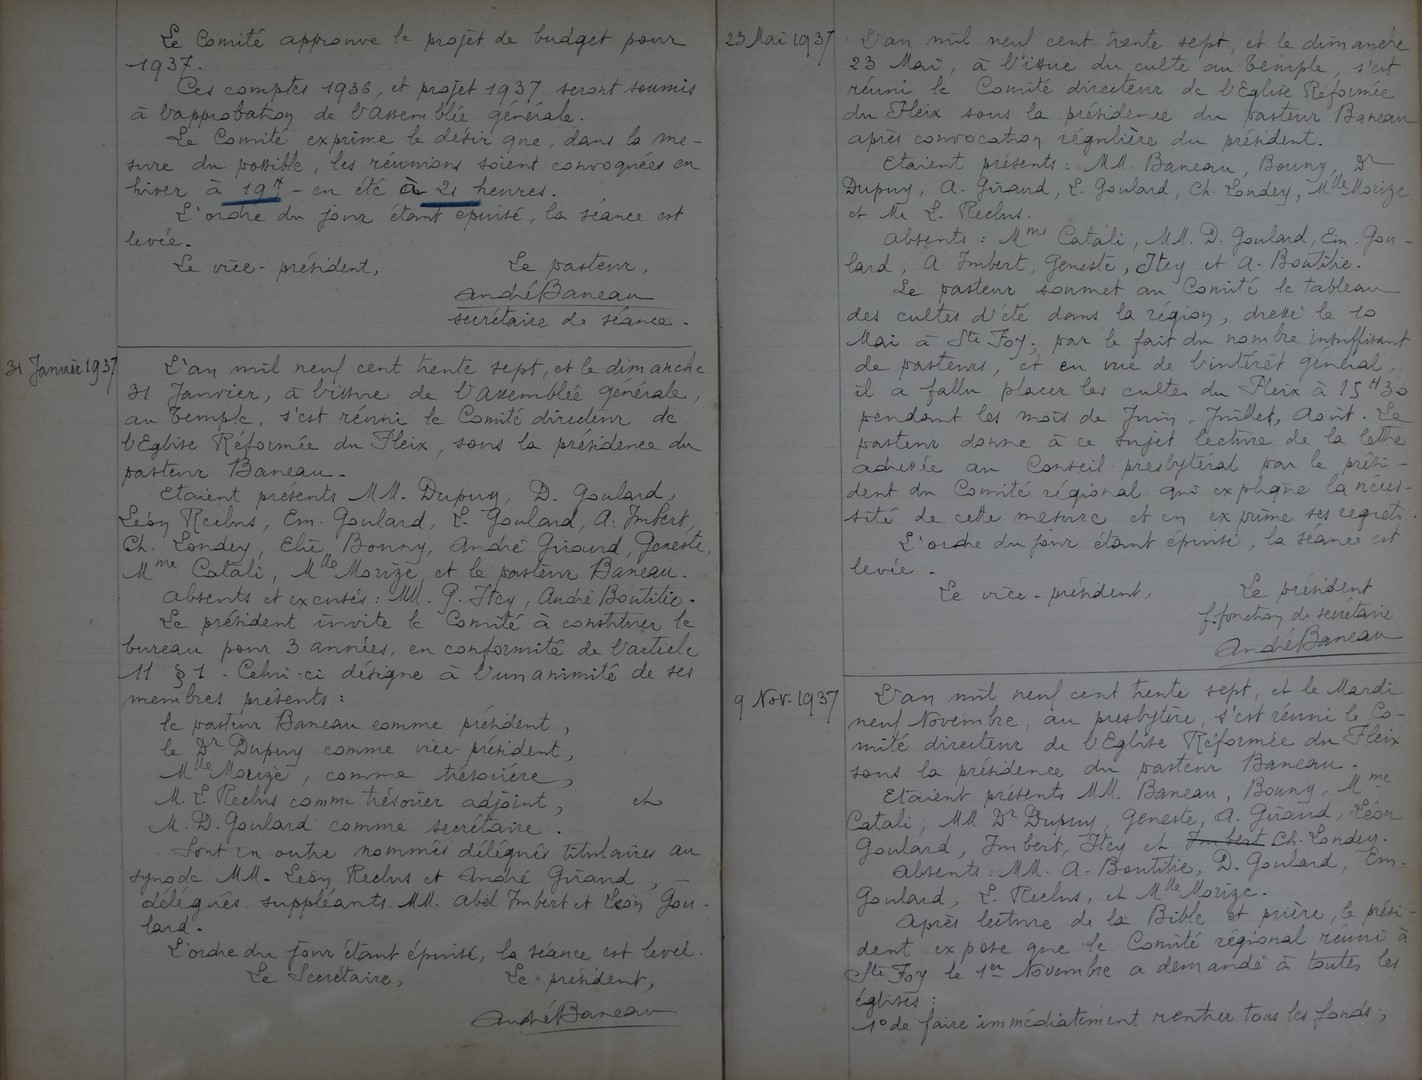 Le Comité approuve le projet de budget pour
1937.
Ces comptes 1936, et projet 1937 seront soumis
à l'approbation de l'Assemblée générale.
Le Comité exprime le désir que, dans la me-
sure du possible, les réunions soient convoquées en
hiver à 19H - en été à 21 heures.
L'ordre du jour étant épuisé, la séance est
levée.
Le vice-président, Le pasteur,
André Baneau
secrétaire de séance.
31 Janvier 1937
L'an mil neuf cent trente sept, et le dimanche
31 Janvier, à l'issue de l'Assemblée générale,
au Temple, s'est réuni le Comité directeur de
l'Eglise Réformée du Fleix, sous la présidence du
pasteur Baneau.
Etaient présents MM. Dupuy, D. Goulard,
Léon Reclus, Em. Goulard, L. Goulard, A. Imbert,
Ch. Londey, Elie Bouny, André Giraud, Geneste,
Mme Catali, Mlle Morize, et le pasteur Baneau.
Absents et excusés : MM. G. Itey, André Boutitie.
Le président invite le Comité à constituer le
bureau pour 3 années, en conformité de l'article
11 § 1. Celui-ci désigne à l'unanimité de ses
membres présents :
le pasteur Baneau comme président,
le Dr Dupuy comme vice-président,
Mlle Morize, comme trésorière,
M. L Reclus comme trésorier adjoint, et
M. D. Goulard comme secrétaire.
Sont en outre nommés délégués titulaires au
synode MM. Léon Reclus et André Giraud,
délégués suppléants MM. Abel Imbert et Léon Gou-
lard.
L'ordre du jour étant épuisé, la séance est levée.
Le Secrétaire, Le président,
André Baneau
23 Mai 1937
L'an mil neuf cent trente sept, et le dimanche
23 Mai, à l'issue du culte au Temple, s'est
réuni le Comité directeur de l'Eglise Réformée
du Fleix sous la présidence du pasteur Baneau
après convocation régulière du président.
Etaient présents : MM. Baneau, Bouny, Dr
Dupuy, A. Giraud, L. Goulard, Ch. Londey, Mlle Morize
et M. L. Reclus.
Absents : Mme Catali, MM. D. Goulard, Em. Gou-
lard, A. Imbert, Geneste, Itey et A. Boutitie.
Le pasteur soumet au Comité le tableau
des cultes d'été dans la région, dressé le 10
Mai à Ste Foy; par le fait du nombre insuffisant
de pasteurs, et en vue de l'intérêt général,
il a fallu placer les cultes du Fleix à 15H30
pendant les mois de Juin, Juillet, Août. Le
pasteur donne à ce sujet lecture de la lettre
adressée au Conseil presbytéral par le prési-
dent du Comité régional qui explique la néces-
sité de cette mesure et en exprime ses regrets.
L'ordre du jour étant épuisé, la séance est
levée.
Le vice-président, Le président
f. fonction de secrétaire
André Baneau
9 Nov. 1937
L'an mil neuf cent trente sept, et le Mardi
neuf Novembre, au presbytère, s'est réuni le Co-
mité directeur de l'Eglise Réformée du Fleix
sous la présidence du pasteur Baneau.
Etaient présents MM. Baneau, Bouny, Mme
Catali, MM Dr Dupuy, Geneste, A. Giraud, Léon
Goulard, Imbert, Itey et Imbert Ch. Londey.
Absents : MM. A. Boutitie, D. Goulard, Em.
Goulard, L. Reclus, et Mlle Morize.
Après lecture de la Bible et prière, le prési-
dent expose que le Comité régional réuni à
Ste Foy le 1er Novembre a demandé à toutes les
églises :
1º de faire immédiatement rentrer tous les fonds;